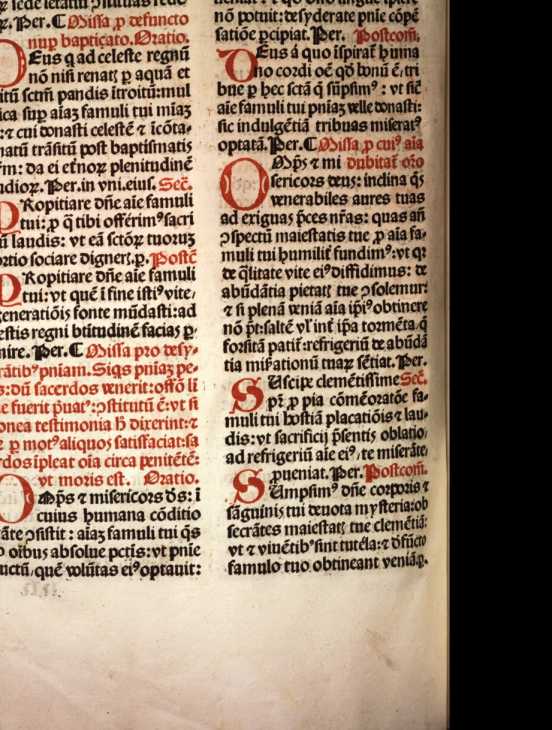 ꝛ. Per. ¶ Missa ꝓ defuncto
nuꝑ baptizato. Oratio.
Deus q ad celeste regnū
nō nisi renatꝭ ꝑ aquā et
pandis ītroitū: mul
ica suꝑ aīaꝫ famuli tui mīaꝫ
: ⁊ cui donasti celestē ⁊
natū trāsitū post baptismatis
da ei plenitudinē
Per. in vni. eius. Sec̄.
Propitiare dn̄e aīe famuli
tui: ꝓ q̄ tibi offerimꝰ sacri
laudis: vt eā sctōꝝ tuoꝝ
ortio sociare dignerꝭ. ꝑ. Postc̄
Propitiare dn̄e aīe famuli
tui: vt quē ī fine istiꝰ vite,
generatiōis fonte mūdasti: ad
estis regni btitudinē facias ꝑ-
nire. Per. ¶ Missa pro desy-
rātibꝰ pniam. Siqs pniaꝫ pe-
dū sacerdos venerit: offō lī
e fuerit ꝯstitutū ē: vt si
onea testimonia dixerint: ⁊
ꝑ motꝰ aliquos satisfaciat: sa
rdos īpleat oīa circa penitētē:
vt moris est. Oratio.
Omps ⁊ misericors ds: ī
cuius humana cōditio
ꝯsistit: aīaꝫ famuli tui qs
oībus absolue pctīs: vt pnie
uctū, quē volūtas eiꝰ optauit:
nō potuit: desyderate pnīe cōpē
satiōe ꝑcipiat. Per. Postcom̄.
Deus a quo īspirat̄ huma
no cordi oē qd bonū ē: tri
bue ꝑ hec sctā q̄ sūpsimꝰ: vt sic̄
aīe famuli tui pniaꝫ velle donasti:
sic indulgētiā tribuas miseratꝰ
optatā. Per. ¶ Missa ꝓ cuiꝰ aīa
dubitat̄ oro
Omps ⁊ mi
sericors deus: inclina qs
venerabiles aures tuas
ad exiguas p̄ces nr̄as: quas añ
ꝯspectū maiestatis tue ꝓ aīa fa-
muli tui humilit̄ fundimꝰ: vt qr
de q̄litate vite eiꝰ diffidimus: de
abūdātia pietatꝭ tue ꝯsolemur:
⁊ si plenā veniā aīa ipīꝰ obtinere
nō pt̄: saltē vl int̄ ipa tormēta, q̄
forsitā patit̄: refrigeriū de abūdā
tia miseratiōnū tuaꝝ sētiat. Per.
Suscipe clemētissime Sec̄.
pr̄ ꝓ pia cōmēoratōe fa-
muli tui hostiā placatiōis ⁊ lau-
dis: vt sacrificij p̄sentis oblatio,
ad refrigeriū aīe eiꝰ, te miserāte,
ꝓueniat. Per. Postcom̄.
Sumpsimꝰ dn̄e corporis ⁊
sāguinis tui deuota mysteria: ob
secrātes maiestatꝭ tue clemētiā:
vt ⁊ viuētibꝰ sint tutela: ⁊ dfūcto
famulo tuo obtineant veniā. ꝑ.